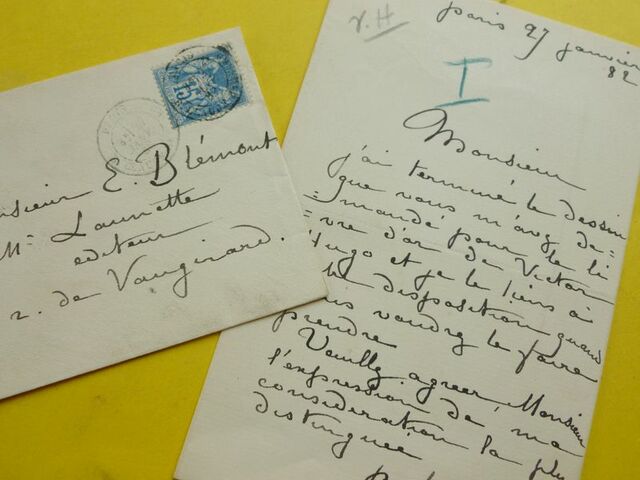 nsieur E. Blémont
Mr Launette
editeur
r. de Vaugirard.
15
V. H
Paris 27 janvier
82
I
Monsieur
j'ai terminé le dessin
que vous m'avez de=
=mandé pour le li
=vre d'or de Victor
Hugo et je le tiens à
disposition quand
us voudrez le faire
prendre
Veuillez agreer, Monsieur
l'expression de ma
consideration la plus
distinguée